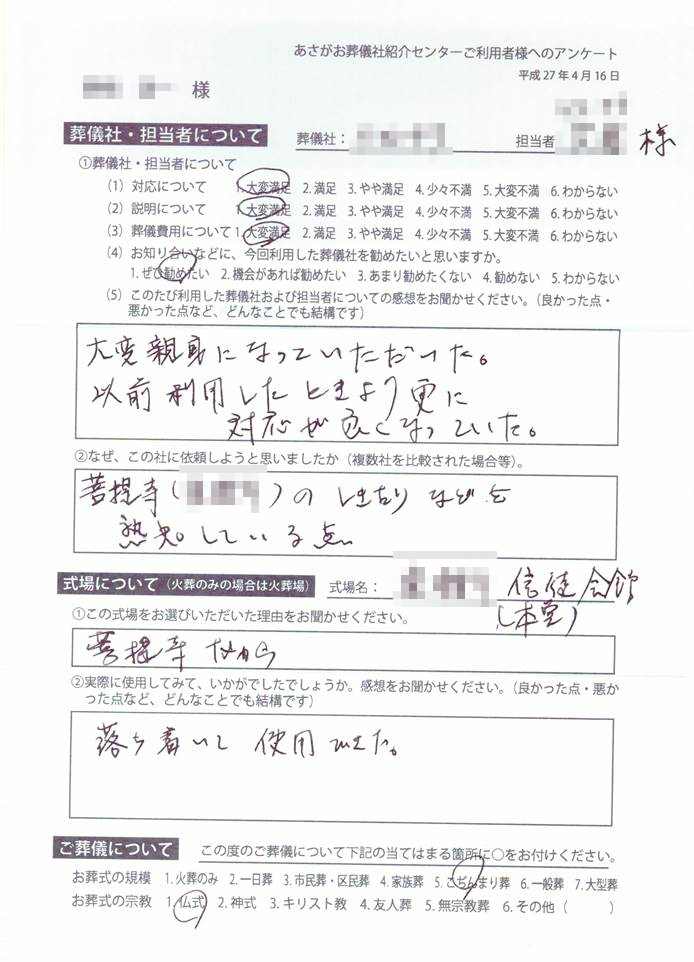 あさがお葬儀社紹介センターご利用者様へのアンケート
平成27年4月16日
様
葬儀社・担当者について 葬儀社： 担当者 様
①葬儀社・担当者について
(1) 対応について 1.大変満足 2.満足 3.やや満足 4.少々不満 5.大変不満 6.わからない
(2) 説明について 1.大変満足 2.満足 3.やや満足 4.少々不満 5.大変不満 6.わからない
(3) 葬儀費用について 1.大変満足 2.満足 3.やや満足 4.少々不満 5.大変不満 6.わからない
(4) お知り合いなどに、今回利用した葬儀社を勧めたいと思いますか。
1.ぜひ勧めたい 2.機会があれば勧めたい 3.あまり勧めたくない 4.勧めない 5.わからない
(5) このたび利用した葬儀社および担当者についての感想をお聞かせください。（良かった点・
悪かった点など、どんなことでも結構です）
大変親身になっていただいた。
以前利用したときより更に
対応が良くなっていた。
②なぜ、この社に依頼しようと思いましたか（複数社を比較された場合等）。
菩提寺( )のしきたりなどを
熟知している点
式場について（火葬のみの場合は火葬場） 式場名： 信徒会館
(本堂)
①この式場をお選びいただいた理由をお聞かせください。
菩提寺だから
②実際に使用してみて、いかがでしたでしょうか。感想をお聞かせください。（良かった点・悪か
った点など、どんなことでも結構です）
落ち着いて使用できた。
ご葬儀について この度のご葬儀について下記の当てはまる箇所に○をお付けください。
お葬式の規模 1.火葬のみ 2.一日葬 3.市民葬・区民葬 4.家族葬 5.こぢんまり葬 6.一般葬 7.大型葬
お葬式の宗教 1.仏式 2.神式 3.キリスト教 4.友人葬 5.無宗教葬 6.その他（ ）